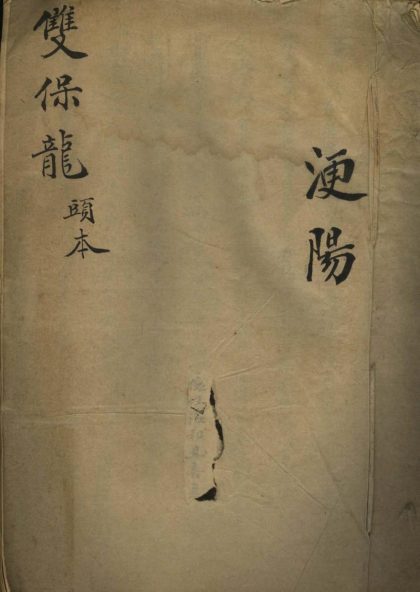 浭陽
雙保龍
頭本